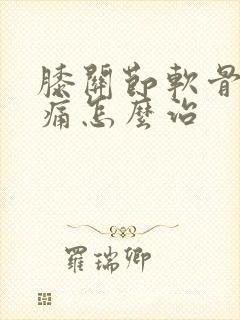 膝關節軟骨
痛怎麼治
羅瑞卿